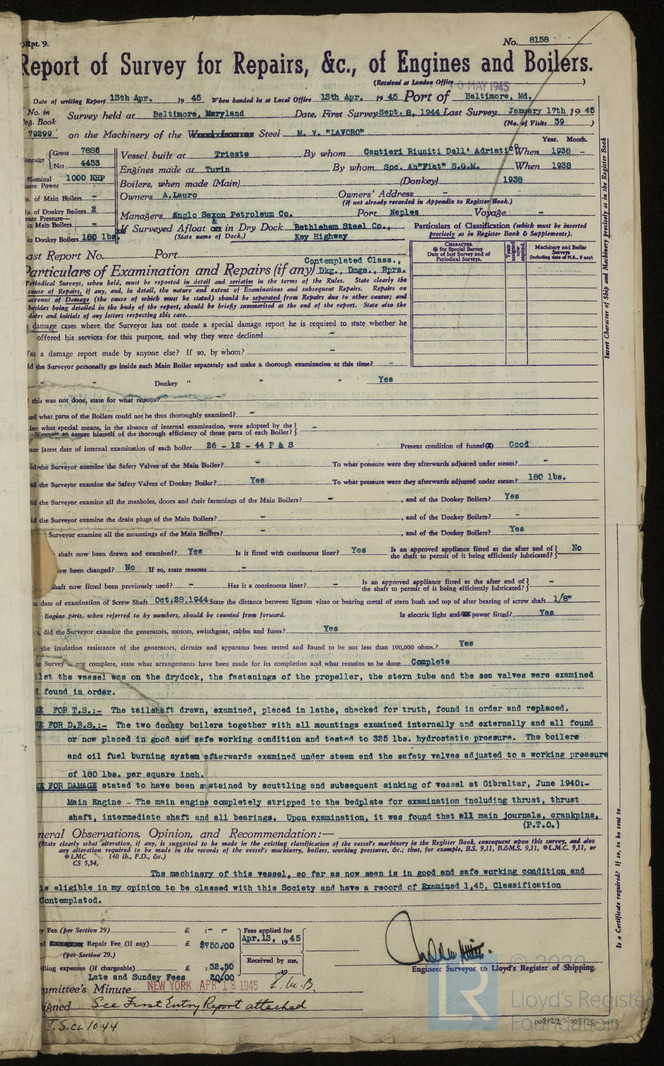 Rpt. 9.
No. 8158
Report of Survey for Repairs, &c., of Engines and Boilers.
(Received at London Office MAY 1945 )
Date of writing Report 13th Apr. 19 45 When handed in at Local Office 13th Apr. 19 45 Port of Baltimore, Md.
No. in Survey held at Baltimore, Maryland Date, First Survey Sept. 8, 1944 Last Survey January 17th 19 45
g. Book (No. of Visits 39 )
79299 on the Machinery of the Steel M. V. "LAVORO"
Year. Month.
Gross 7886
Net 4453
Vessel built at Trieste By whom Cantieri Riuniti Dall' Adriatico When 1938 -
Nominal 1000 NHP Engines made at Turin By whom Soc. An "Fiat" S.G.M. When 1938
Boilers, when made (Main) - (Donkey) 1938
o. of Main Boilers - Owners A.Lauro Owners' Address -
(if not already recorded in Appendix to Register Book.)
o. of Donkey Boilers 2 Managers Anglo Saxon Petroleum Co. Port Naples Voyage -
in Donkey Boilers 180 lbs. If Surveyed Afloat & in Dry Dock Bethlehem Steel Co.,
(State name of Dock.) Key Highway
Particulars of Classification (which must be inserted
precisely as in Register Book & Supplements).
ast Report No. Port
Contemplated Class.,
Particulars of Examination and Repairs (if any) Dkg., Dmge., Rprs.
CHARACTER
for Special Survey
Date of last Survey and of
Periodical Surveys.
Machinery and Boiler
Surveys
(including dates of N.B., if any)
Insert Character of Ship and Machinery precisely as in the Register Book
Periodical Surveys, when held, must be reported in detail and seriatim in the terms of the Rules. State clearly the
cause of Repairs, if any, and, in detail, the nature and extent of Examinations and subsequent Repairs. Repairs on
account of Damage (the cause of which must be stated) should be separated from Repairs due to other causes; and
besides being detailed in the body of the report, should be briefly summarised at the end of the report. State also the
dates and initials of any letters respecting this case.
damage cases where the Surveyor has not made a special damage report he is required to state whether he
offered his services for this purpose, and why they were declined -
as a damage report made by anyone else? If so, by whom? -
d the Surveyor personally go inside each Main Boiler separately and make a thorough examination at this time? -
" Donkey " " " Yes
this was not done, state for what reason? -
nd what parts of the Boilers could not be thus thoroughly examined? -
lso what special means, in the absence of internal examination, were adopted by the
assure himself of the thorough efficiency of those parts of each Boiler? -
ate latest date of internal examination of each boiler 26 - 12 - 44 P & S Present condition of funnel(s) Good
d the Surveyor examine the Safety Valves of the Main Boiler? - To what pressure were they afterwards adjusted under steam? -
d the Surveyor examine the Safety Valves of Donkey Boiler? Yes To what pressure were they afterwards adjusted under steam? 180 lbs.
d the Surveyor examine all the manholes, doors and their fastenings of the Main Boilers? - , and of the Donkey Boilers? Yes
d the Surveyor examine the drain plugs of the Main Boilers? - , and of the Donkey Boilers? -
Surveyor examine all the mountings of the Main Boilers? - , and of the Donkey Boilers? Yes
shaft now been drawn and examined? Yes Is it fitted with continuous liner? Yes Is an approved appliance fitted at the after end of the shaft to permit of it being efficiently lubricated? No
ow been changed? No If so, state reasons -
haft now fitted been previously used? - Has it a continuous liner? - Is an approved appliance fitted at the after end of the shaft to permit of it being efficiently lubricated? -
e date of examination of Screw Shaft Oct.28,1944 State the distance between lignum vitæ or bearing metal of stern bush and top of after bearing of screw shaft 1/8"
Engine parts, when referred to by numbers, should be counted from forward. Is electric light and power fitted? Yes
, did the Surveyor examine the generators, motors, switchgear, cables and fuses? Yes
the insulation resistance of the generators, circuits and apparatus been tested and found to be not less than 100,000 ohms? Yes
e Survey is not complete, state what arrangements have been made for its completion and what remains to be done Complete
ilst the vessel was on the drydock, the fastenings of the propeller, the stern tube and the sea valves were examined
d found in order.
E FOR T.S.:- The tailshaft drawn, examined, placed in lathe, checked for truth, found in order and replaced.
E FOR D.B.S.:- The two donkey boilers together with all mountings examined internally and externally and all found
or now placed in good and safe working condition and tested to 325 lbs. hydrostatic pressure. The boilers
and oil fuel burning system afterwards examined under steam and the safety valves adjusted to a working pressure
of 180 lbs. per square inch.
E FOR DAMAGE stated to have been sustained by scuttling and subsequent sinking of vessel at Gibraltar, June 1940:-
Main Engine - The main engine completely stripped to the bedplate for examination including thrust, thrust
shaft, intermediate shaft and all bearings. Upon examination, it was found that all main journals, crankpins,
(P.T.O.)
neral Observations, Opinion, and Recommendation:—
(State clearly what alteration, if any, is suggested to be made in the existing classification of the vessel's machinery in the Register Book, consequent upon this survey, and also
any alteration required to be made in the records of the vessel's machinery, boilers, working pressures, &c.; thus, for example, B.S. 9,11, B.&M.S. 9,11, ✠L.M.C. 9,11, or
✠LMC 140 lb., F.D., &c.)
CS 3,34,
The machinery of this vessel, so far as now seen is in good and safe working condition and
is eligible in my opinion to be classed with this Society and have a record of Examined 1,45, Classification
Contemplated.
Is a Certificate required? If so, to be sent to
y Fee (per Section 29) £ : - -
Repair Fee (if any) £ $750.00
(per Section 29.)
lling expenses (if chargeable) £ 32.50
Late and Sunday Fees 20.00
Fees applied for
Apr.13, 19 45
Received by me,
Engineer Surveyor to Lloyd's Register of Shipping.
mmittee's Minute NEW YORK APR 18 1945
signed See First Entry Report attached
T.S. CL 10.44
© 2020
LR
Lloyd's Register
Foundation